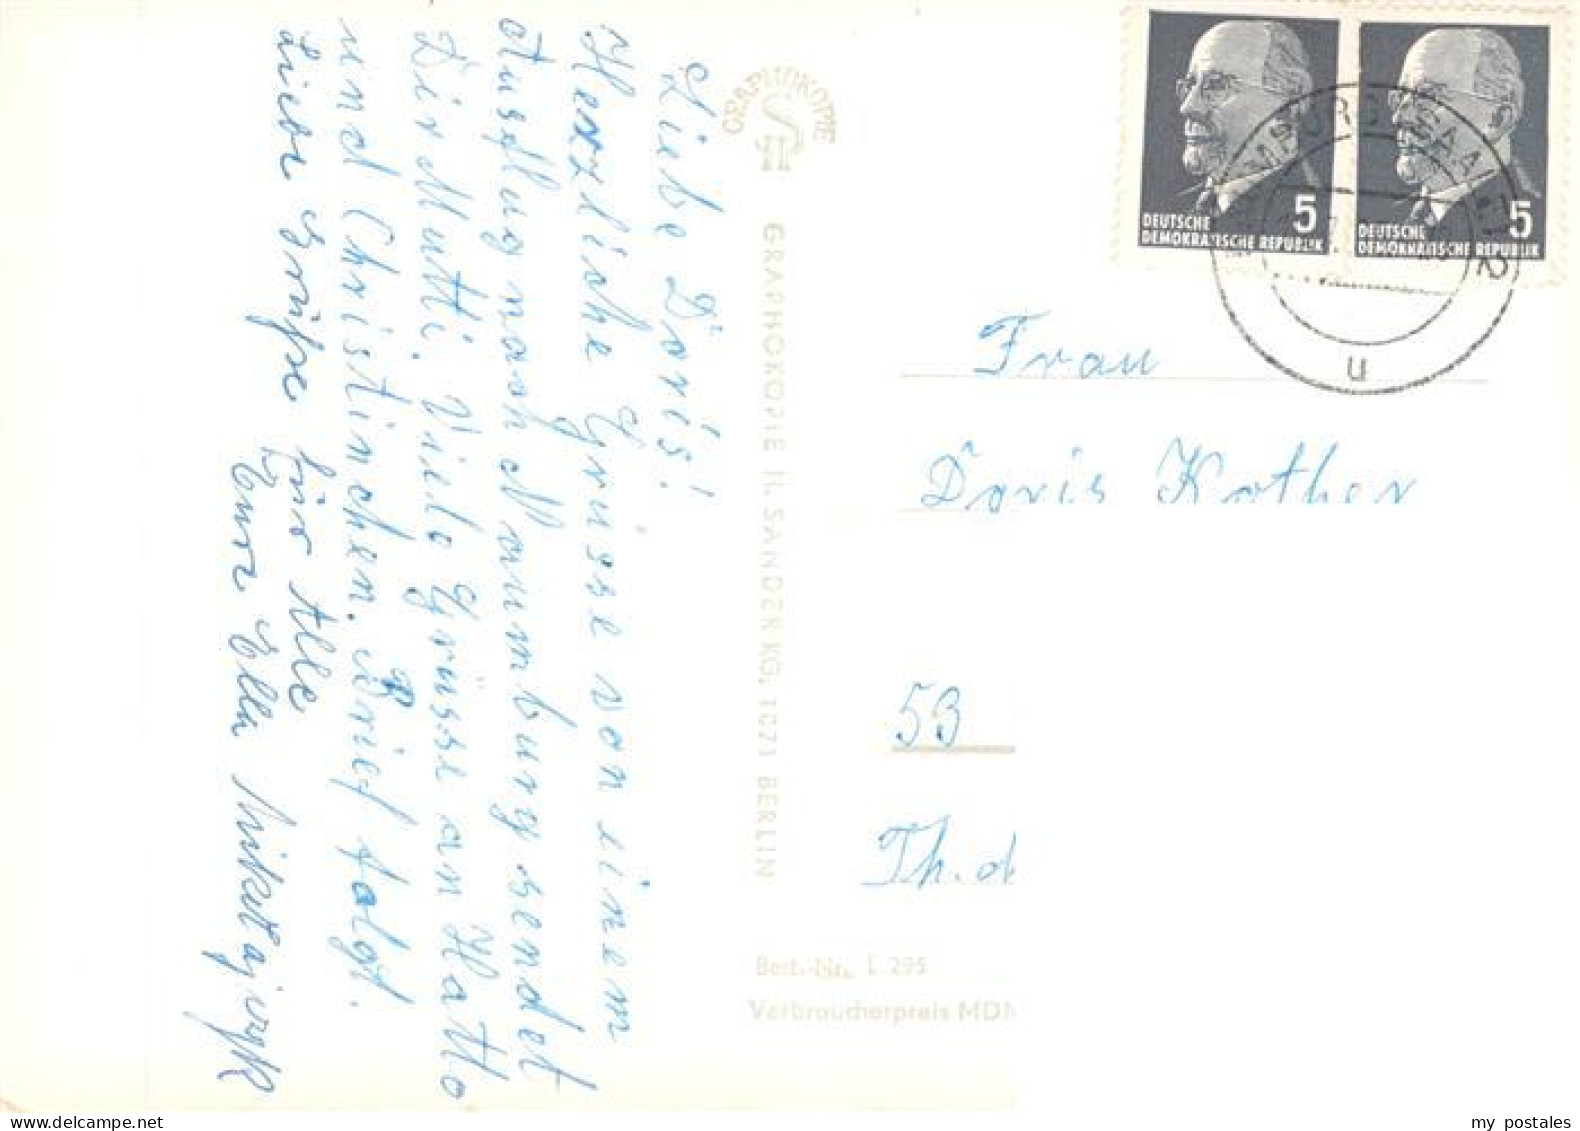 Liebe Doris!
Herzliche Grüsse von einem
Ausflug nach Naumburg sendet
Dir Mutti. Viele Grüsse an Hatto
und Christinchen. Brief folgt.
Liebe Grüße für Alle
Eure Ella
GRAPHOKOPIE
GRAPHOKOPIE H. SANDER KG, 1071 BERLIN
Best.-Nr. L 295
Verbraucherpreis MDN
5 5
DEUTSCHE DEUTSCHE
DEMOKRATISCHE REPUBLIK DEMOKRATISCHE REPUBLIK
u
Frau
Doris Kother
53
Th.
my postales